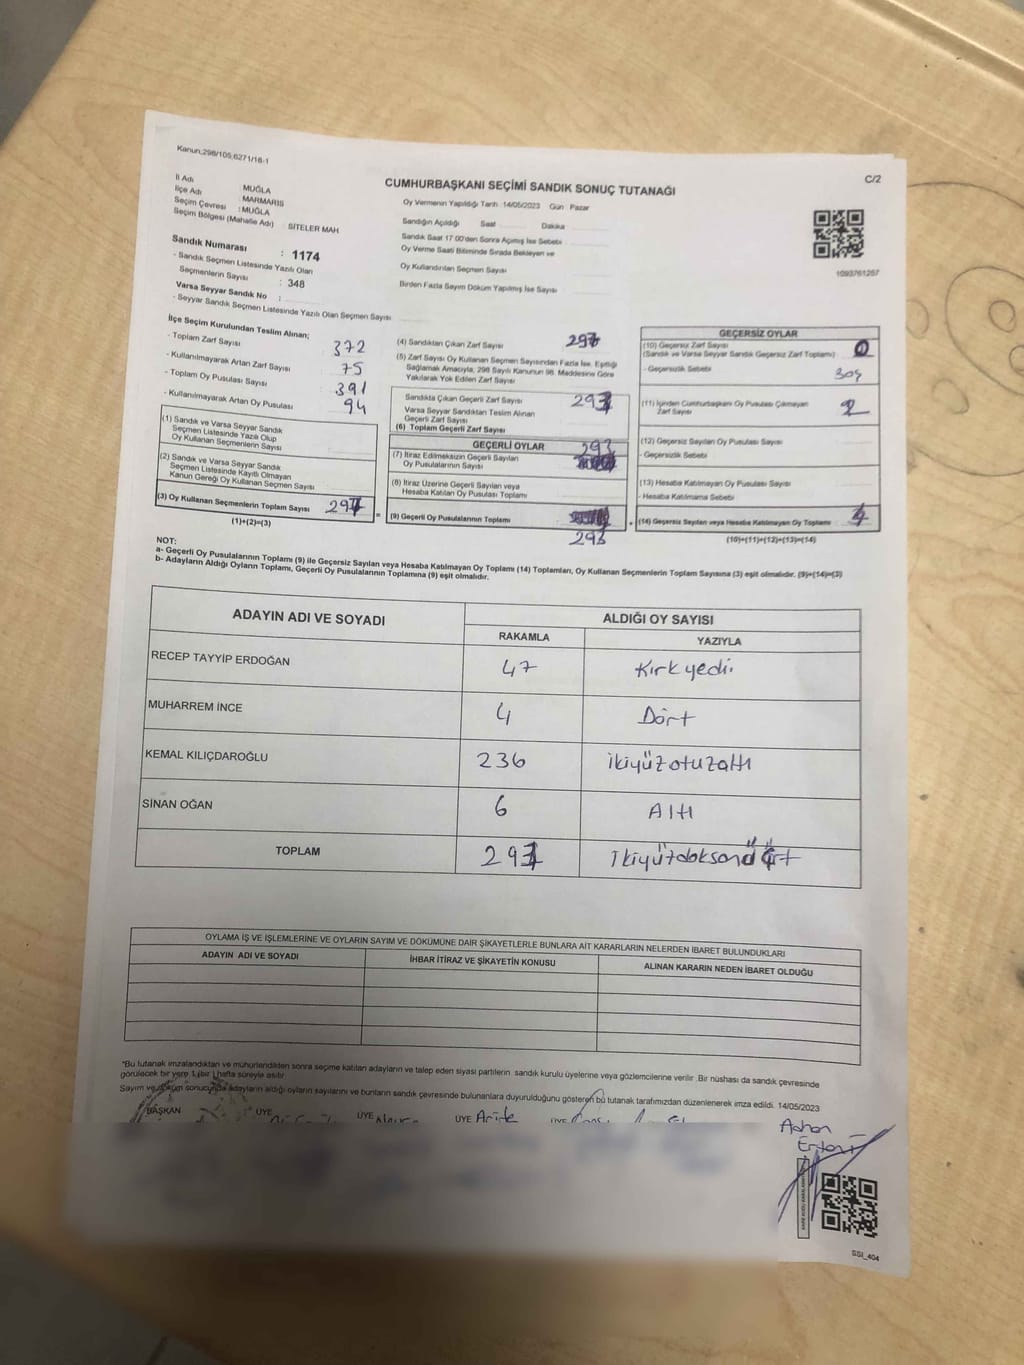 Kanun;298/105;6271/16-1
C/2
CUMHURBAŞKANI SEÇİMİ SANDIK SONUÇ TUTANAĞI
İl Adı : MUĞLA
İlçe Adı MARMARİS
Seçim Çevresi : MUĞLA
Seçim Bölgesi (Mahalle Adı) : SİTELER MAH
Sandık Numarası : 1174
- Sandık Seçmen Listesinde Yazılı Olan
Seçmenlerin Sayısı : 348
Varsa Seyyar Sandık No :
- Seyyar Sandık Seçmen Listesinde Yazılı Olan Seçmen Sayısı
Oy Vermenin Yapıldığı Tarih :14/05/2023 Gün : Pazar
Sandığın Açıldığı Saat Dakika
Sandık Saat 17:00'den Sonra Açılmış İse Sebebi
Oy Verme Saati Bitiminde Sırada Bekleyen ve
Oy Kullandırılan Seçmen Sayısı
Birden Fazla Sayım Döküm Yapılmış İse Sayısı
1093761257
İlçe Seçim Kurulundan Teslim Alınan;
- Toplam Zarf Sayısı 372
- Kullanılmayarak Artan Zarf Sayısı 75
- Toplam Oy Pusulası Sayısı 391
- Kullanılmayarak Artan Oy Pusulası 94
(1) Sandık ve Varsa Seyyar Sandık
Seçmen Listesinde Yazılı Olup
Oy Kullanan Seçmenlerin Sayısı
(2) Sandık ve Varsa Seyyar Sandık
Seçmen Listesinde Kayıtlı Olmayan
Kanun Gereği Oy Kullanan Seçmen Sayısı
(3) Oy Kullanan Seçmenlerin Toplam Sayısı 297
(1)+(2)=(3)
(4) Sandıktan Çıkan Zarf Sayısı 297
(5) Zarf Sayısı Oy Kullanan Seçmen Sayısından Fazla İse, Eşitliği
Sağlamak Amacıyla, 298 Sayılı Kanunun 98. Maddesine Göre
Yakılarak Yok Edilen Zarf Sayısı
Sandıkta Çıkan Geçerli Zarf Sayısı
Varsa Seyyar Sandıktan Teslim Alınan
Geçerli Zarf Sayısı
(6) Toplam Geçerli Zarf Sayısı
GEÇERLİ OYLAR
(7) İtiraz Edilmeksizin Geçerli Sayılan 293
Oy Pusulalarının Sayısı
(8) İtiraz Üzerine Geçerli Sayılan veya
Hesaba Katılan Oy Pusulası Toplamı
(9) Geçerli Oy Pusulalarının Toplamı
293
GEÇERSİZ OYLAR
(10) Geçersiz Zarf Sayısı 0
(Sandık ve Varsa Seyyar Sandık Geçersiz Zarf Toplamı)
- Geçersizlik Sebebi boş
(11) İçinden Cumhurbaşkanı Oy Pusulası Çıkmayan
Zarf Sayısı
(12) Geçersiz Sayılan Oy Pusulası Sayısı
- Geçersizlik Sebebi
(13) Hesaba Katılmayan Oy Pusulası Sayısı
- Hesaba Katılmama Sebebi
(14) Geçersiz Sayılan veya Hesaba Katılmayan Oy Toplamı 4
(10)+(11)+(12)+(13)=(14)
NOT:
a- Geçerli Oy Pusulalarının Toplamı (9) ile Geçersiz Sayılan veya Hesaba Katılmayan Oy Toplamı (14) Toplamları, Oy Kullanan Seçmenlerin Toplam Sayısına (3) eşit olmalıdır. (9)+(14)=(3)
b- Adayların Aldığı Oyların Toplamı, Geçerli Oy Pusulalarının Toplamına (9) eşit olmalıdır.
ADAYIN ADI VE SOYADI ALDIĞI OY SAYISI
RAKAMLA YAZIYLA
RECEP TAYYİP ERDOĞAN 47 Kırkyedi
MUHARREM İNCE 4 Dört
KEMAL KILIÇDAROĞLU 236 ikiyüzotuzaltı
SİNAN OĞAN 6 Altı
TOPLAM 293
OYLAMA İŞ VE İŞLEMLERİNE VE OYLARIN SAYIM VE DÖKÜMÜNE DAİR ŞİKAYETLERLE BUNLARA AİT KARARLARIN NELERDEN İBARET BULUNDUKLARI
ADAYIN ADI VE SOYADI İHBAR İTİRAZ VE ŞİKAYETİN KONUSU ALINAN KARARIN NEDEN İBARET OLDUĞU
*Bu tutanak imzalandıktan ve mühürlendikten sonra seçime katılan adayların ve talep eden siyasi partilerin sandık kurulu üyelerine veya gözlemcilerine verilir. Bir nüshası da sandık çevresinde
görülecek bir yere 1 (bir ) hafta süreyle asılır.
Sayım ve döküm sonucunda adayların aldığı oyların sayılarını ve bunların sandık çevresinde bulunanlara duyurulduğunu gösteren bu tutanak tarafımızdan düzenlenerek imza edildi. 14/05/2023
BAŞKAN ÜYE ÜYE ÜYE ÜYE
SSİ_404